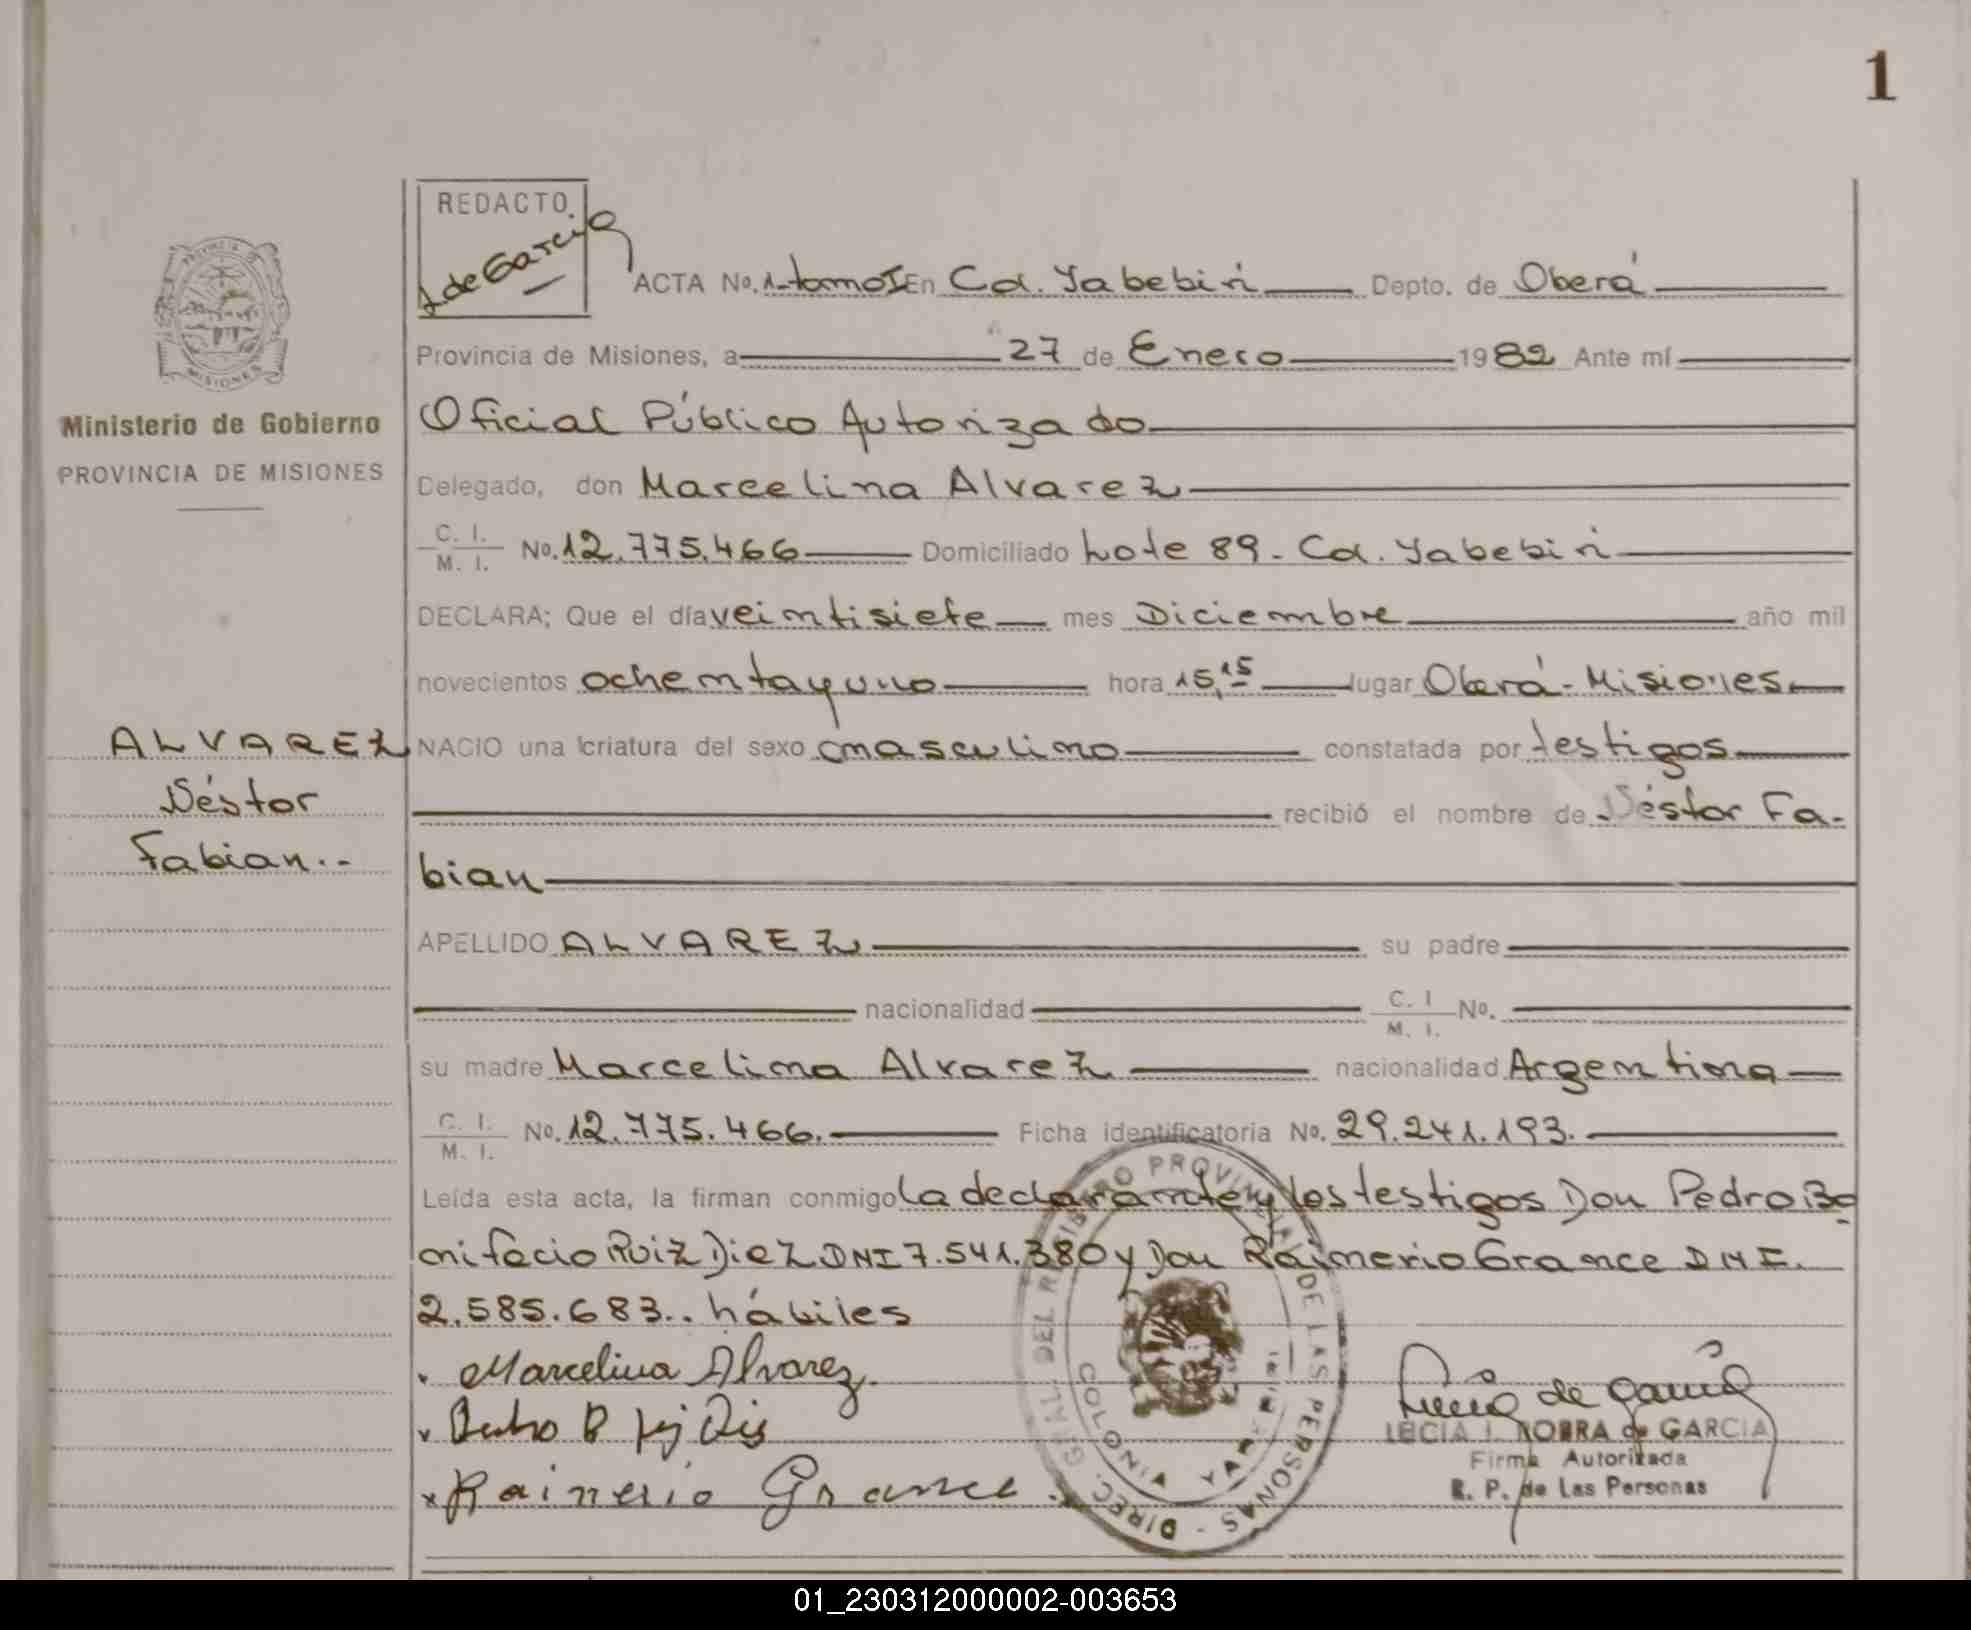 1
REDACTO.
L de Garcia
ACTA No. 1-tomo I En Col. Yabebiri Depto. de Oberá
Provincia de Misiones, a 27 de Enero 1982 Ante mí
Oficial Público Autorizado
Ministerio de Gobierno
PROVINCIA DE MISIONES
Delegado, don Marcelina Alvarez
C. I. / M. I. No. 12.775.466 Domiciliado Lote 89 - Col. Yabebiri
DECLARA; Que el día veintisiete mes Diciembre año mil
novecientos ochentayuno hora 15,15 lugar Oberá - Misiones.
ALVAREZ
Néstor
Fabian.-
NACIO una criatura del sexo masculino constatada por testigos
recibió el nombre de Néstor Fa-
bian
APELLIDO ALVAREZ su padre
nacionalidad C. I / M. I. No.
su madre Marcelina Alvarez nacionalidad Argentina
C. I. / M. I. No. 12.775.466. Ficha identificatoria No. 29.241.193.
Leída esta acta, la firman conmigo la declarante y los testigos Don Pedro Bo
nifacio Ruiz Diez DNI 7.541.380 y Don Rainerio Grance DNI.
2.585.683.. hábiles
Marcelina Alvarez.
Rainerio Grance
de Garcia
LECIA I. ROBRA de GARCIA
Firma Autorizada
R. P. de Las Personas
DIREC. GRAL. DEL REGISTRO PROVINCIAL DE LAS PERSONAS -
COLONIA
01_230312000002-003653